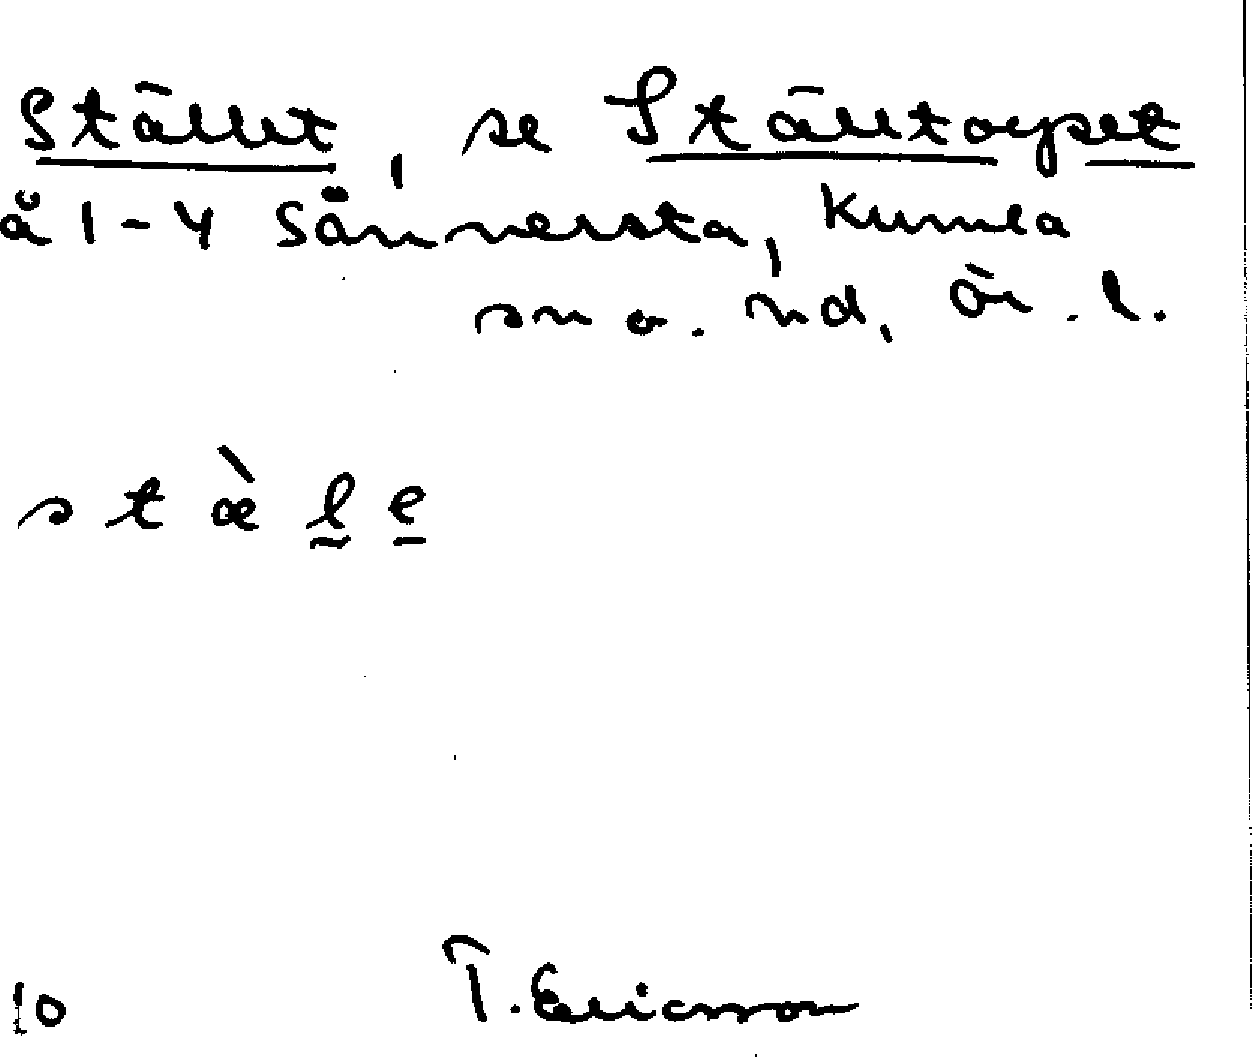 Stället, se Ställtorpet
å 1-4 Sånnersta, Kumla
sn o. hd, Ör. l.
stὰle
10 T. Ericsson